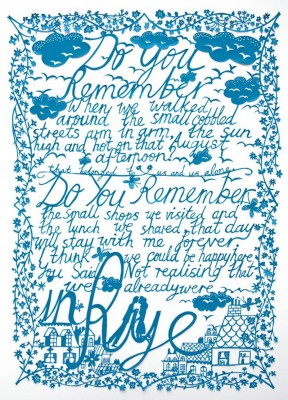 Do You
Remember
When we walked
around the small cobbled
streets arm in arm, the sun
high and hot on that August
afternoon
that belonged to us and us alone
Do You Remember
the small shops we visited and
the lunch we shared that day
will stay with me forever
I think we could be happy here
you Said Not realising that
we already were
in Rye